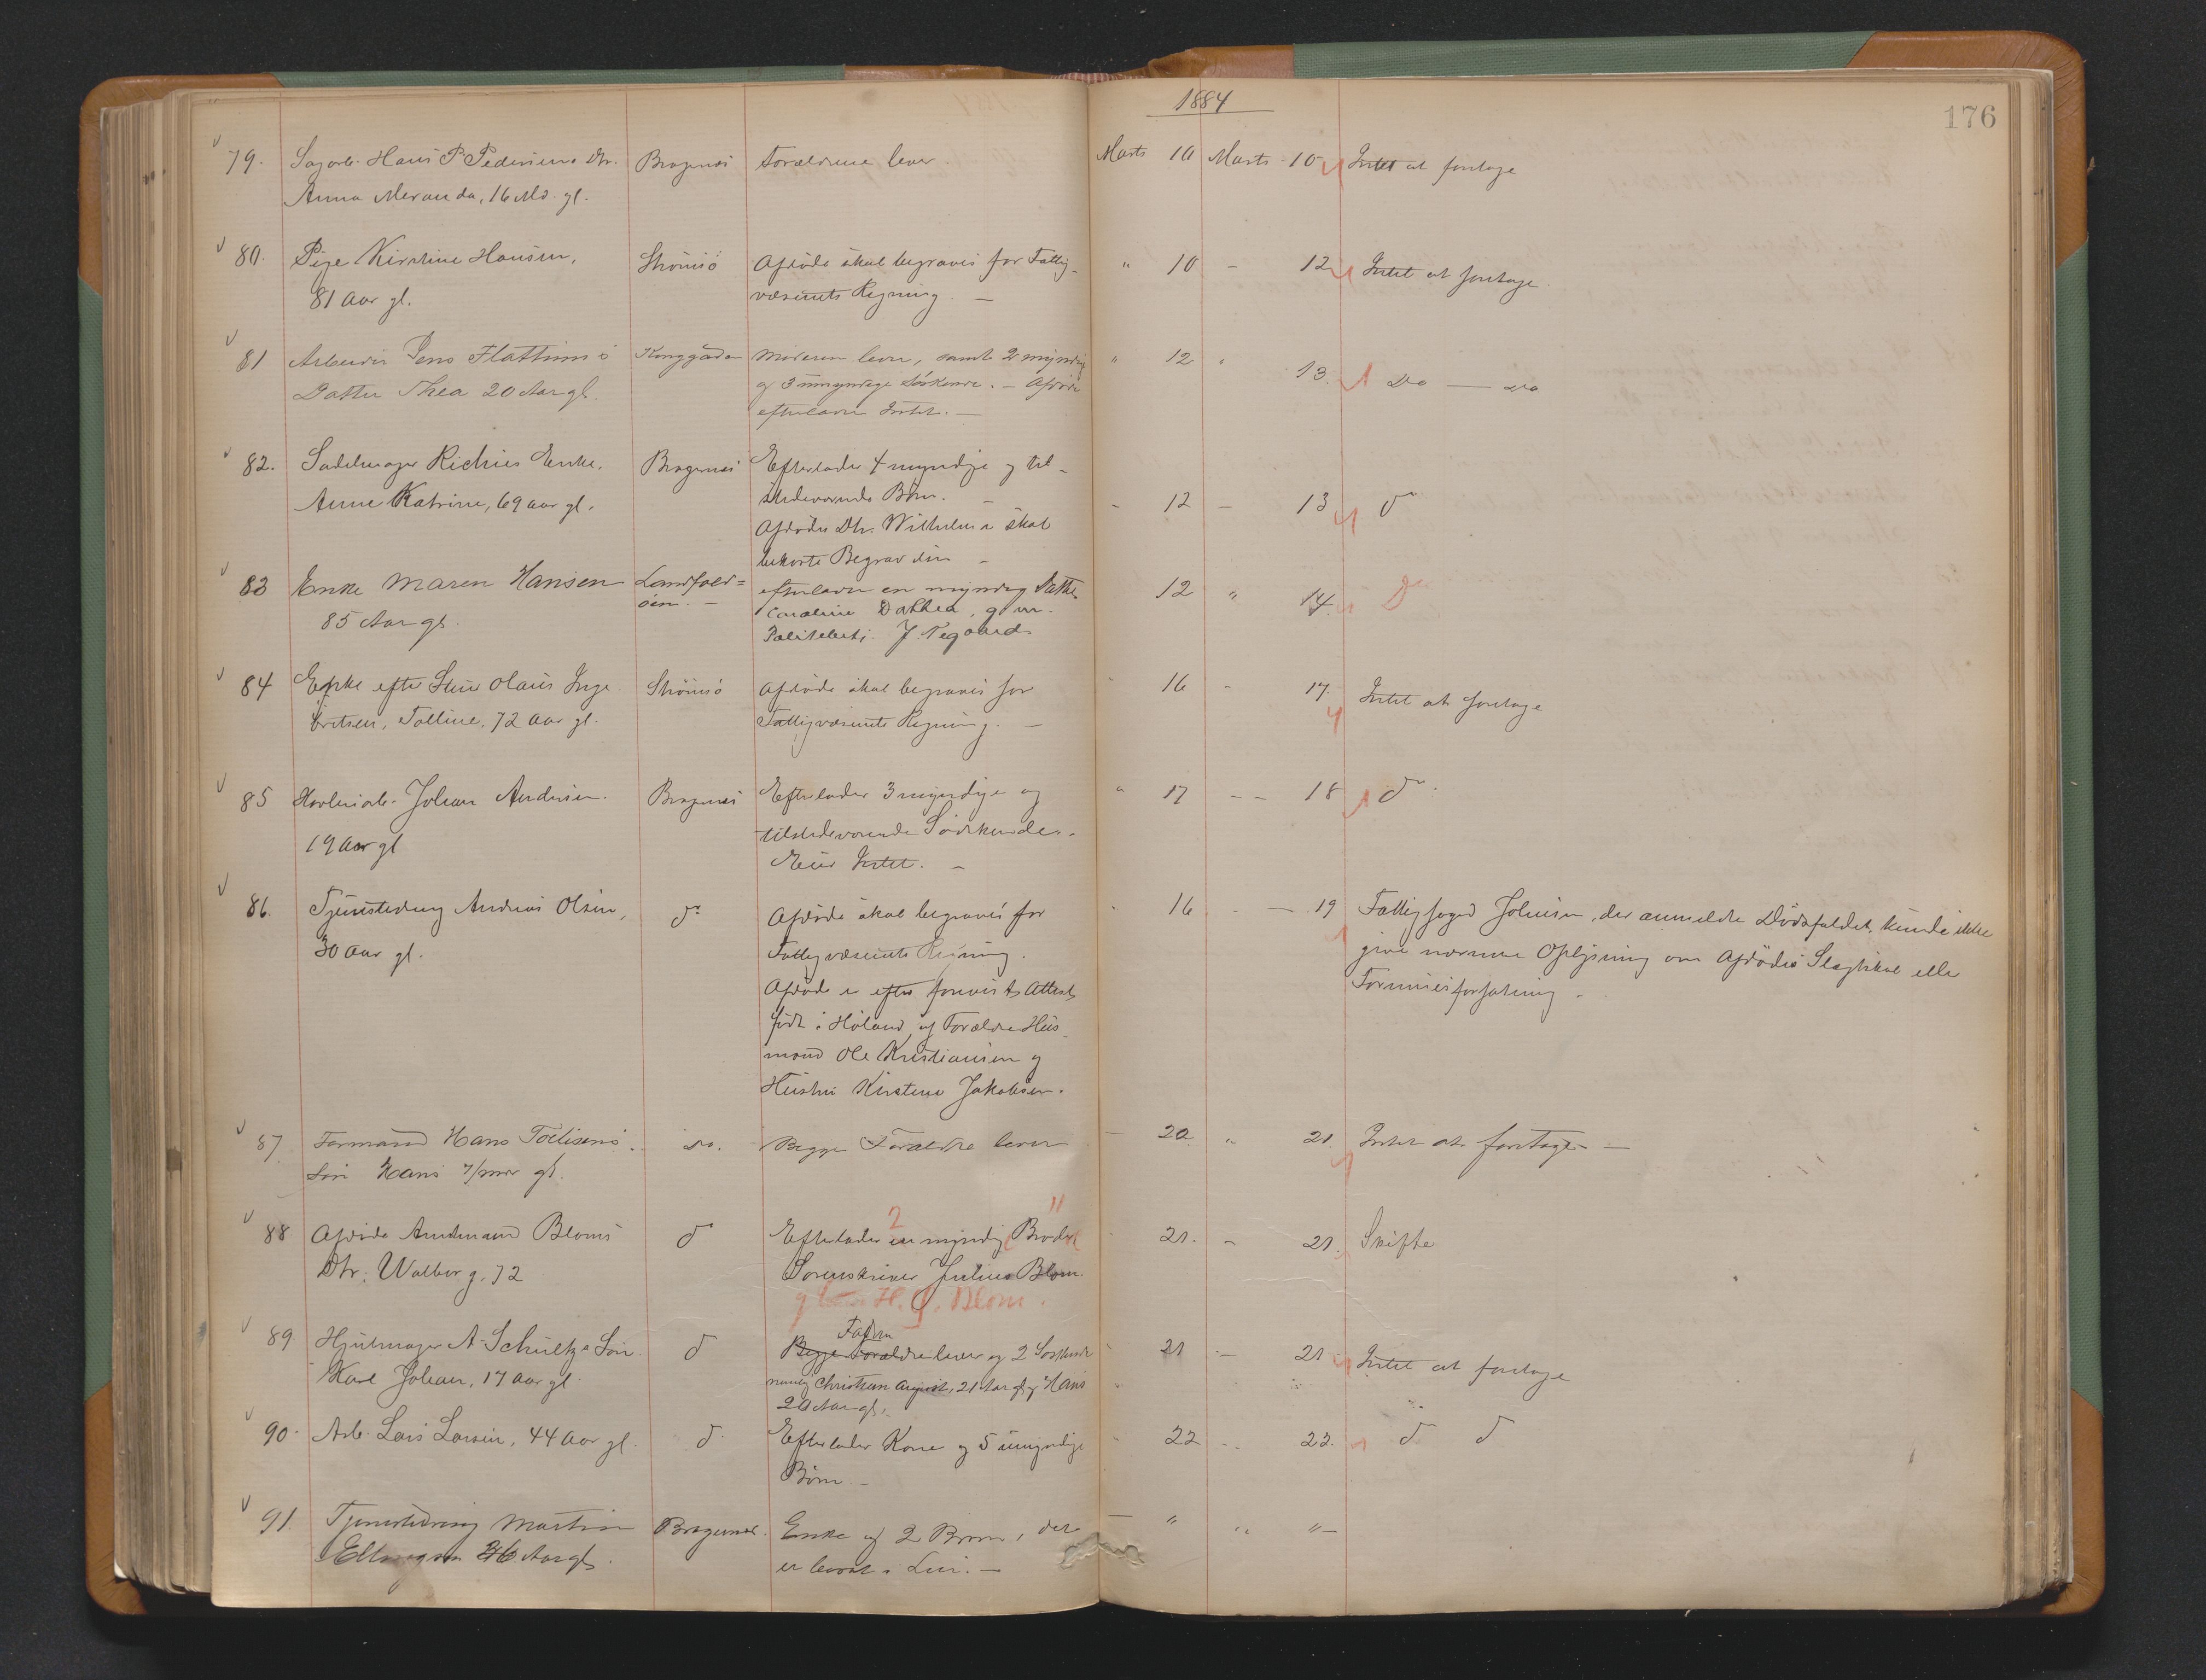 1884
176
79. Sagarb. Hans P. Pedersens Dtr. Bragernæs Forældrene lever. Marts 10 Marts 10 Intet at foretage
Anna Meranda, 16 Md. gl.
80. Pige Kirstine Hansen, Strömsö Afdöde skal begraves for Fattig- " 10 - 12 Intet at foretage.
81 Aar gl. væsenets Regning. —
81 Arbeider Jens Flattums Konggaden Moderen lever, samt 2 myndige " 12 " 13. Do — Do
Datter Thea 20 Aar gl. og 3 umyndige Söskende. — Afdöde
efterlader Intet. —
82. Sadelmager Richters Enke, Bragernæs Efterlader 4 myndige og til-
Anne Katrine, 69 Aar gl. stedeværende Börn. — - 12 - 13 do
Afdödes Dtr. Wilhelma skal
bekoste Begravelsen —
83 Enke Maren Hansen Landfald= efterlader en myndig Datter 12 " 14. Do
85 Aar gl. öen. — Caroline Dathea, g. m.
Politibetj. J. Tegaard
84 Enke efter Stuer Olaus Inge- Strömsö Afdöde skal begraves for " 16 - 17. Intet at foretage
bretsen, Talline, 72 Aar gl. Fattigvæsenets Regning. —
85 Høvleriarb. Johan Andersen. Bragernæs Efterlader 3 myndige og " 17 - - 18 do
19 Aar gl tilstedeværende Södskende.
Eier Intet. —
86. Tjenestedreng Andreas Olsen, do Afdöde skal begraves for - 16 - - 19 Fattigfoged Johnsen, der anmeldte Dödsfaldet, kunde ikke
30 Aar gl. Fattigvæsenets Regning. give nærmere Oplysning om Afdödes Slægtskab eller
Afdöde er efter forevist Attest Formuesforfatning.
född i Höland, af Forældre Hus-
mand Ole Kristiansen og
Hustru Kirstine Jakobsen.
87. Formand Hans Toelisens do. Begge Forældre lever — 20 " 21. Intet at foretage —
Sön Hans 7/mdr gl.
88 Afdöde Amtmand Bloms do Efterlader 2 en myndig Broder - 21. - 21. Skifte
Dtr. Walborg, 72 Sorenskriver Julius Blom.
og H. J. Blom.
89. Hjulmager A. Schultz's Sön do Begge Forældre Faderen lever og 2 Söskende " 21 - 21 Intet at foretage
Karl Johan, 17 Aar gl. navnlig Christian August, 21 Aar gl. og Hans
20 Aar gl.
90. Arb. Lars Larsen, 44 Aar gl. do Efterlader Kone og 5 umyndige " 22 - 22. do do
Börn —
91. Tjenestedreng Martin Bragernæs. Enke og 2 Børn, der — " " "—
Ellingsen 36 Aar gl. er bosat i Lier. —